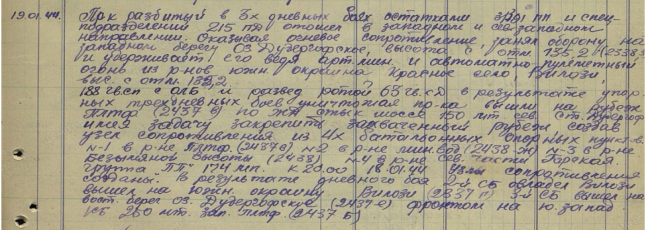 19.01.44. Пр-к разбитый в 3х дневных боях остатками 391 пп и спец-
подразделений 215 пд отошел в западном и сев. западном
направлении. Оказывая огневое сопротивление занял оборону на
западном берегу оз. Дудергофское, высота с отм 135.2 (2338з)
и удерживает его ведя арт. мин. и автоматно пулеметный
огонь из р-нов южн. окраина Красное село, Вилози,
выс. с отм 182,2
188 гв.сп с ОЛБ и развед. ротой 63 гв.сд в результате упор-
ных трехдневных боев уничтожая пр-ка вышли на рубеж
Плтф. (2437 е) по ж.д шоссе 150 мт. сев. ст. Дудергоф
имея задачу закрепить захваченный рубеж, создав
узел сопротивления из 4х батальонных опорных пунктов.
№-1 в р-не Плтф. (2437е) №2 в р-не (2438 ж) №-3 в р-не
Безымяной высоты (2438) №4 в р-не сев. части Горская.
Группа "ПП" 174 мп. к 20.00 18.01.44 Узлы сопротивления
созданы. В результате дневного боя 2-й СБ овладел Вилози
вышел на южн. окраину Вилози (2337 г) 3-й СБ вышел на
вост. берег оз. Дудергофское (2437-е) фронтом на ю. запад.
1СБ 250 мт. зап. плтф. (2437 Б)